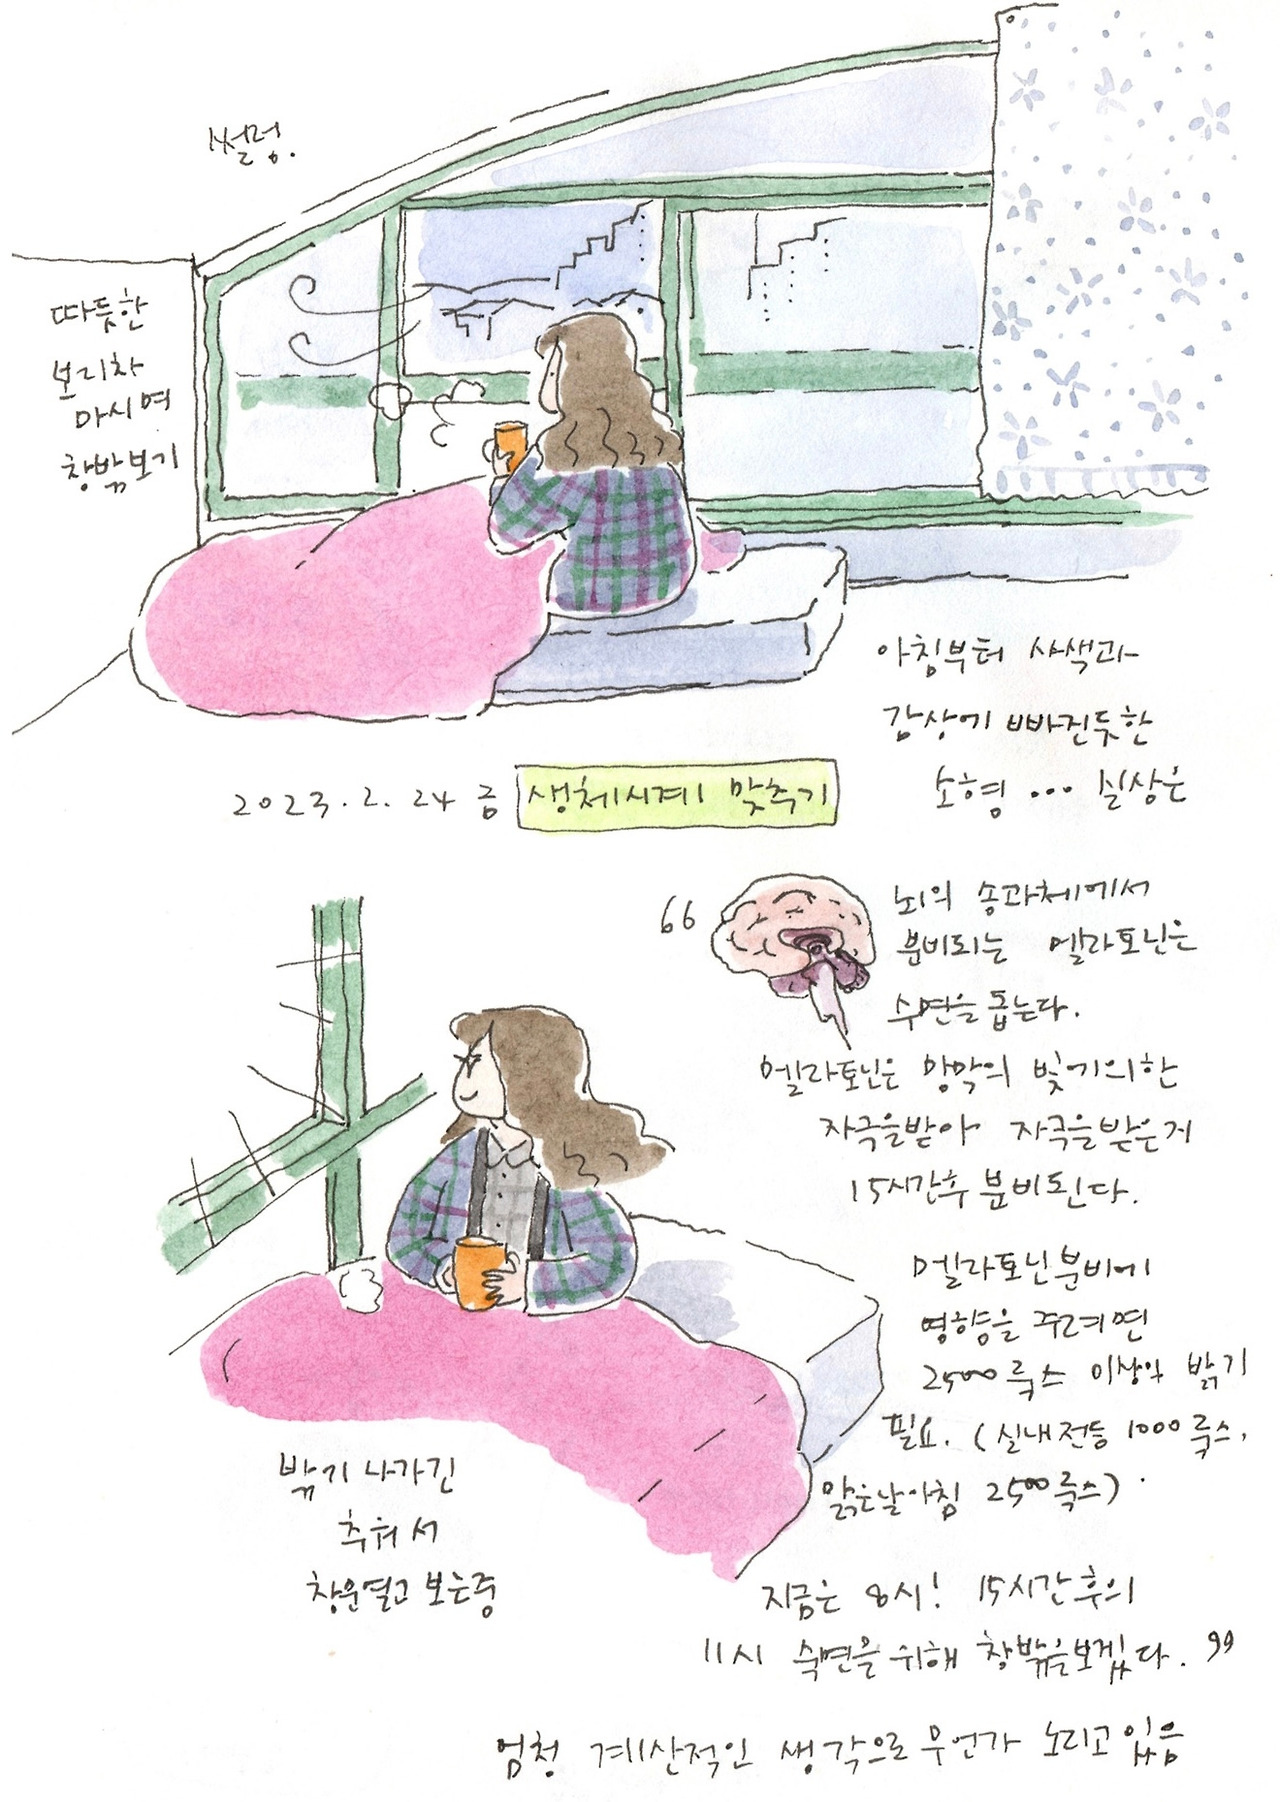 썰렁.
따듯한
보리차
마시며
창밖보기
아침부터 사색과
감상에 빠진듯한
소형 ... 실상은
2023.2.24 금 생체시계 맞추기
66 뇌의 송과체에서
분비되는 멜라토닌은
수면을 돕는다.
멜라토닌은 망막의 빛에의한
자극을받아 자극을받은지
15시간후 분비된다.
멜라토닌분비에
영향을 주려면
2500룩스 이상의 밝기
필요. (실내전등 1000룩스,
맑은날아침 2500룩스).
밖에 나가긴
추워서
창문열고 보는중
지금은 8시! 15시간후의
11시 숙면을 위해 창밖을보겠다. 99
엄청 계산적인 생각으로 무언가 노리고 있음